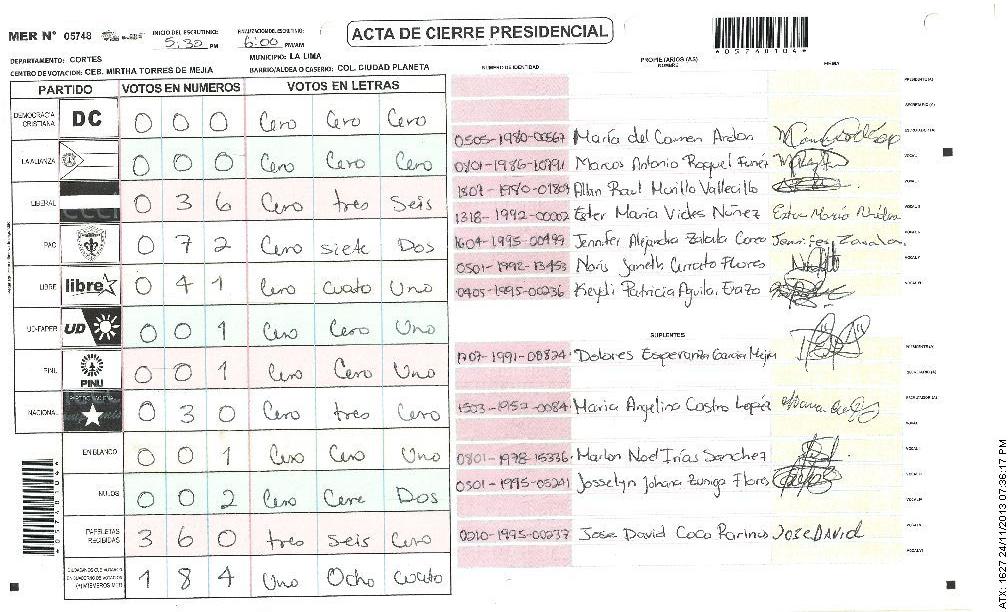 MER N° 05748 INICIO DEL ESCRUTINIO: 5:30 PM FINALIZACION ESCRUTINIO: 6:00 PM/AM
ACTA DE CIERRE PRESIDENCIAL
*05740104*
DEPARTAMENTO: CORTES MUNICIPIO: LA LIMA
CENTRO DE VOTACION: CEB. MIRTHA TORRES DE MEJIA BARRIO/ALDEA O CASERIO: COL. CIUDAD PLANETA
PARTIDO VOTOS EN NUMEROS VOTOS EN LETRAS
DEMOCRACIA CRISTIANA DC 0 0 0 Cero Cero Cero
LA ALIANZA 0 0 0 Cero Cero Cero
LIBERAL 0 3 6 Cero tres Seis
PAC 0 7 2 Cero siete Dos
LIBRE libre 0 4 1 Cero cuato Uno
UD-FAPER UD 0 0 1 Cero Cero Uno
PINU PINU 0 0 1 Cero Cero Uno
NACIONAL 0 3 0 Cero tres Cero
EN BLANCO 0 0 1 Cero Cero Uno
NULOS 0 0 2 Cero Cero Dos
PAPELETAS RECIBIDAS 3 6 0 tres seis Cero
1 8 4 Uno Ocho cuato
NUMERO DE IDENTIDAD PROPIETARIOS (AS) NOMBRE FIRMA
PRESIDENTE (A)
SECRETARIO (A)
0505-1980-00567 María del Carmen Ardon ESCRUTADOR (A)
0801-1986-10791 Marcos Antonio Raquel Funez VOCAL I
1807-1980-01809 Allan Raul Murillo Vallecillo
1318-1992-00002 Ester Maria Vides Núñez Ester María
1604-1995-00499 Jennifer Alejandra Zalata Coco Jennifer Zavala
0501-1992-13453 Noris Janeth Cerrato Flores
0405-1995-00236 Keydi Patricia Aguilar Erazo
SUPLENTES
1707-1991-00824 Dolores Esperanza Garcia Mejia PRESIDENTE (A)
SECRETARIO (A)
1503-1952-0084 Maria Angelina Castro Lopez ESCRUTADOR (A)
VOCAL
0801-1978-15336 Marlon Noel Irías Sanchez
0501-1995-05201 Josselyn Johana Zuniga Flores
0210-1995-00237 Jose David Coco Parino JOSE DAVID
ATX: 1627 24/11/2013 07:36:17 PM